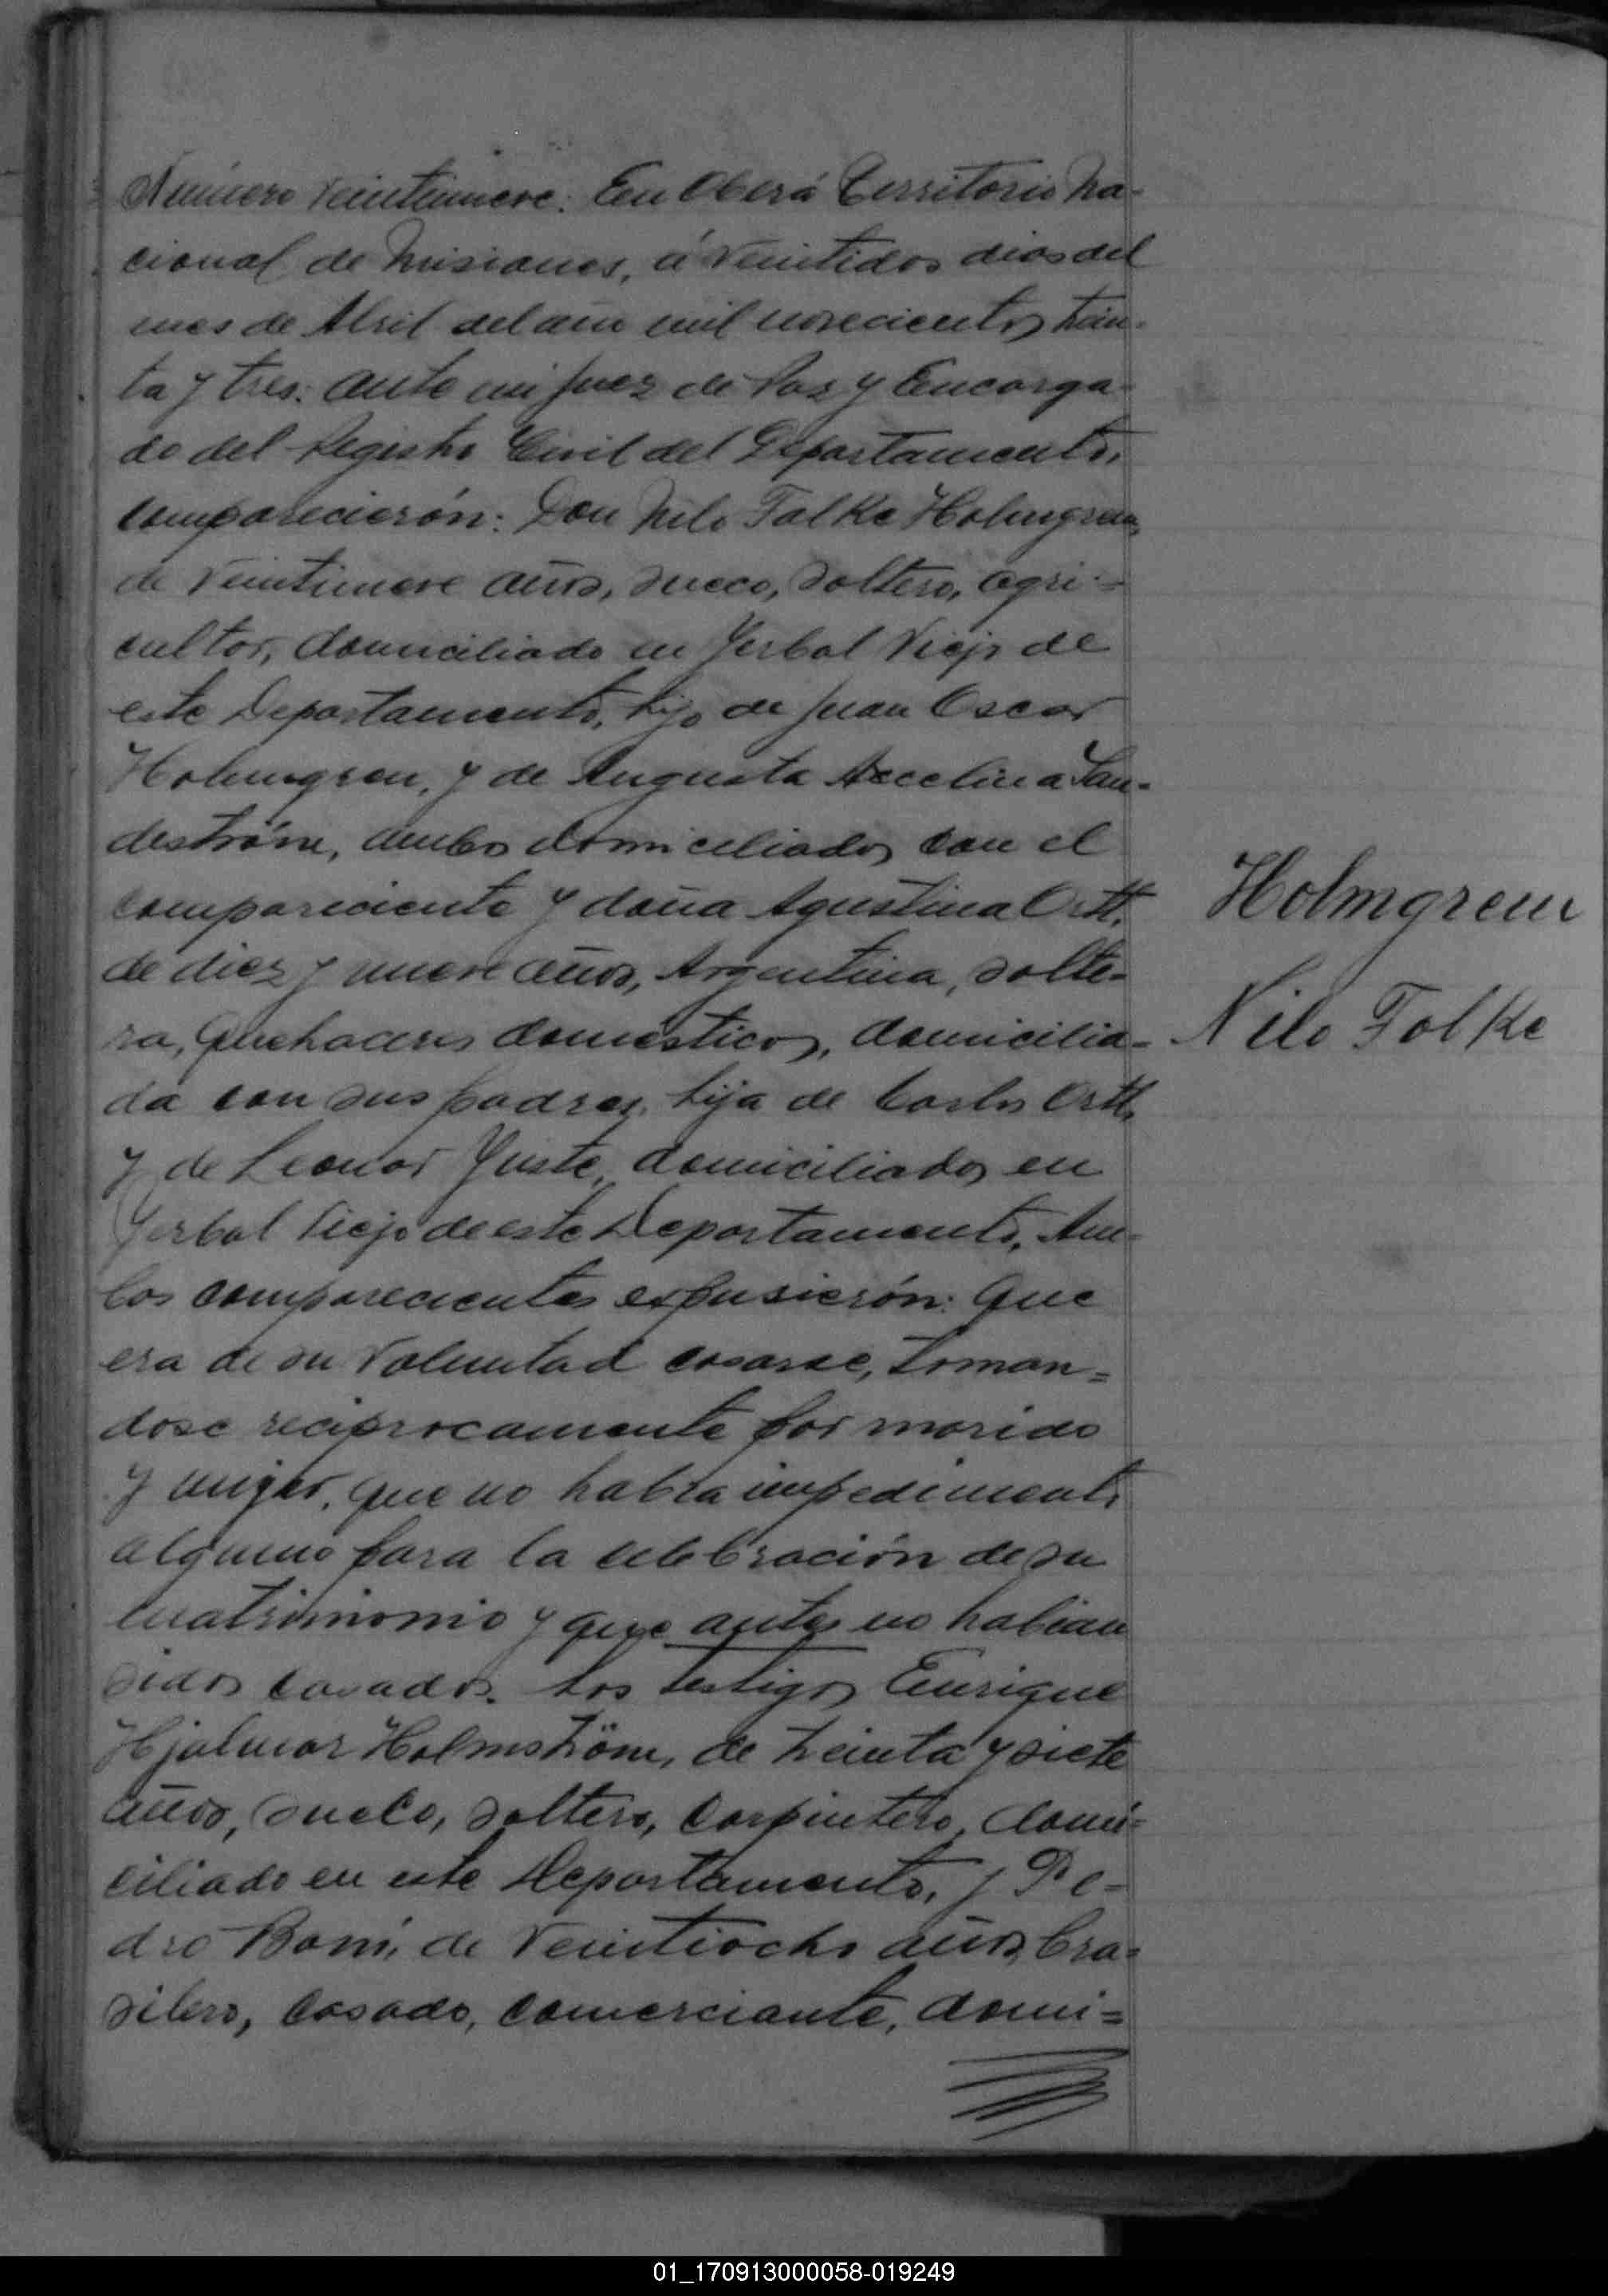 Número veintinueve: En Oberá Territorio Na-
cional de Misiones, á veintidos dias del
mes de Abril del año mil novecientos trein-
ta y tres: ante mi Juez de Paz y Encarga-
do del Registro Civil del Departamento,
comparecierón: Don Nilo Folke Holmgren,
de veintinueve años, sueco, soltero, agri-
cultor, domiciliado en Yerbal Viejo de
este Departamento, hijo de Juan Oscar
Holmgren, y de Augusta Accelina San-
deström, ambos domiciliados con el
compareciente y doña Agustina Ortt,
de diez y nueve años, Argentina, solte-
ra, quehaceres domésticos, domicilia-
da con sus padres, hija de Carlos Ortt,
y de Leonor Yuste, domiciliados en
Yerbal Viejo de este Departamento. Am-
bos comparecientes expusierón: Que
era de su voluntad casarse, toman-
dose reciprocamente por marido
y mujer, que no habia impedimento
alguno para la celebración de su
matrimonio y que antes no habian
sidos casados. Los testigos Enrique
Hjalmar Holmström, de treinta y siete
años, sueco, soltero, carpintero, domi-
ciliado en este Departamento, y Pe-
dro Bom, de veintiocho años, bra-
silero, casado, comerciante, domi-
Holmgren
Nilo Folke
01_170913000058-019249